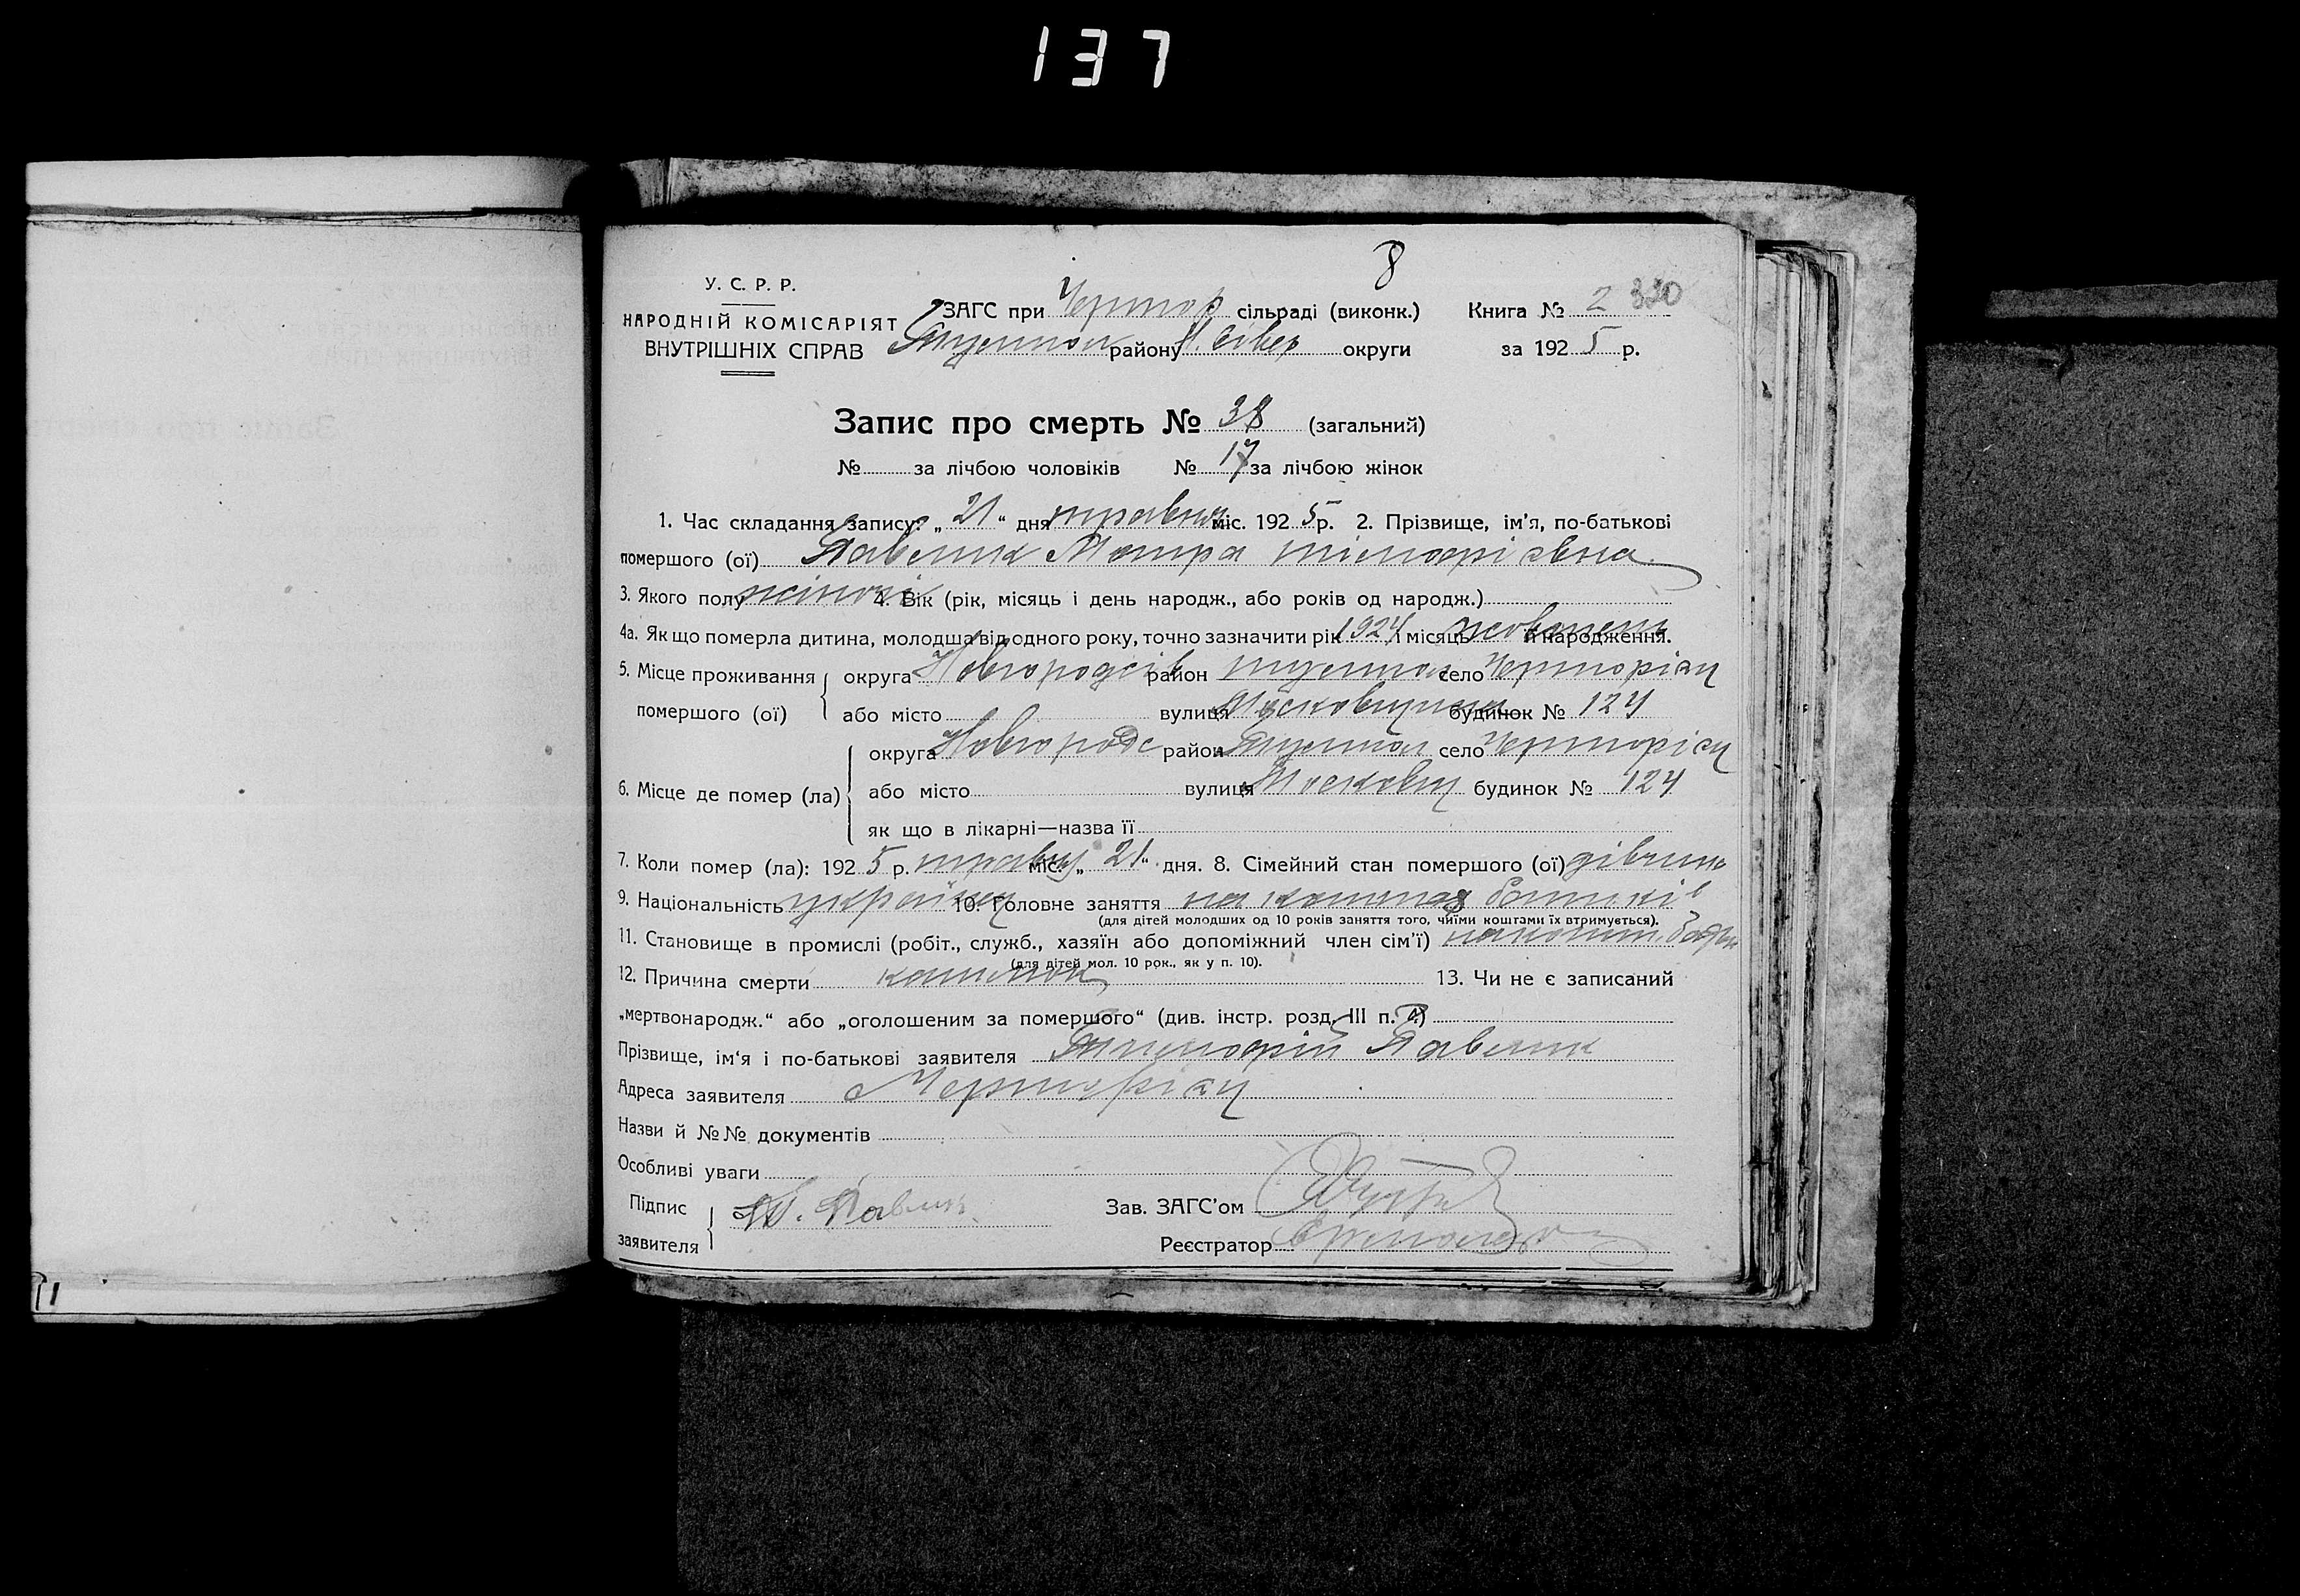 137
8
У. С. Р. Р.
ЗАГС при Чертор сільраді (виконк.) Книга № 2 320
НАРОДНІЙ КОМІСАРІЯТ
ВНУТРІШНІХ СПРАВ району Н. Сівер округи за 1925 р.
Запис про смерть № 38 (загальний)
№ за лічбою чоловіків № 17 за лічбою жінок
1. Час складання запису: „21“ дня травня міс. 1925 р. 2. Прізвище, ім’я, по-батькові
помершого (ої) Павлик Мотра тімофієвна
3. Якого полу жіночі 4. Вік (рік, місяць і день народж., або років од народж.)
4а. Як що померла дитина, молодша від одного року, точно зазначити рік 1924 місяць жовтень й народження.
5. Місце проживання округа Новгородсів район село Черторіги
помершого (ої) або місто вулиця будинок № 124
округа Новгородс район село Черторіги
6. Місце де помер (ла) або місто вулиця Московщ будинок № 124
як що в лікарні—назва її
7. Коли помер (ла): 1925 р. травня міс. „21“ дня. 8. Сімейний стан помершого (ої) дівчина
9. Національність 10. Головне заняття на коштах батьків
(для дітей молодших од 10 років заняття того, чиїми коштами їх втримується).
11. Становище в промислі (робіт., служб., хазяїн або допоміжний член сім’ї) на кошт. батьк
(для дітей мол. 10 рок., як у п. 10).
12. Причина смерти кашлюк 13. Чи не є записаний
„мертвонародж.“ або „оголошеним за помершого“ (див. інстр. розд. III п. 4)
Прізвище, ім‘я і по-батькові заявителя Тимофій Павлик
Адреса заявителя Черторіги
Назви й №№ документів
Особливі уваги
Підпис Т. Павлик Зав. ЗАГС’ом
заявителя Реєстратор